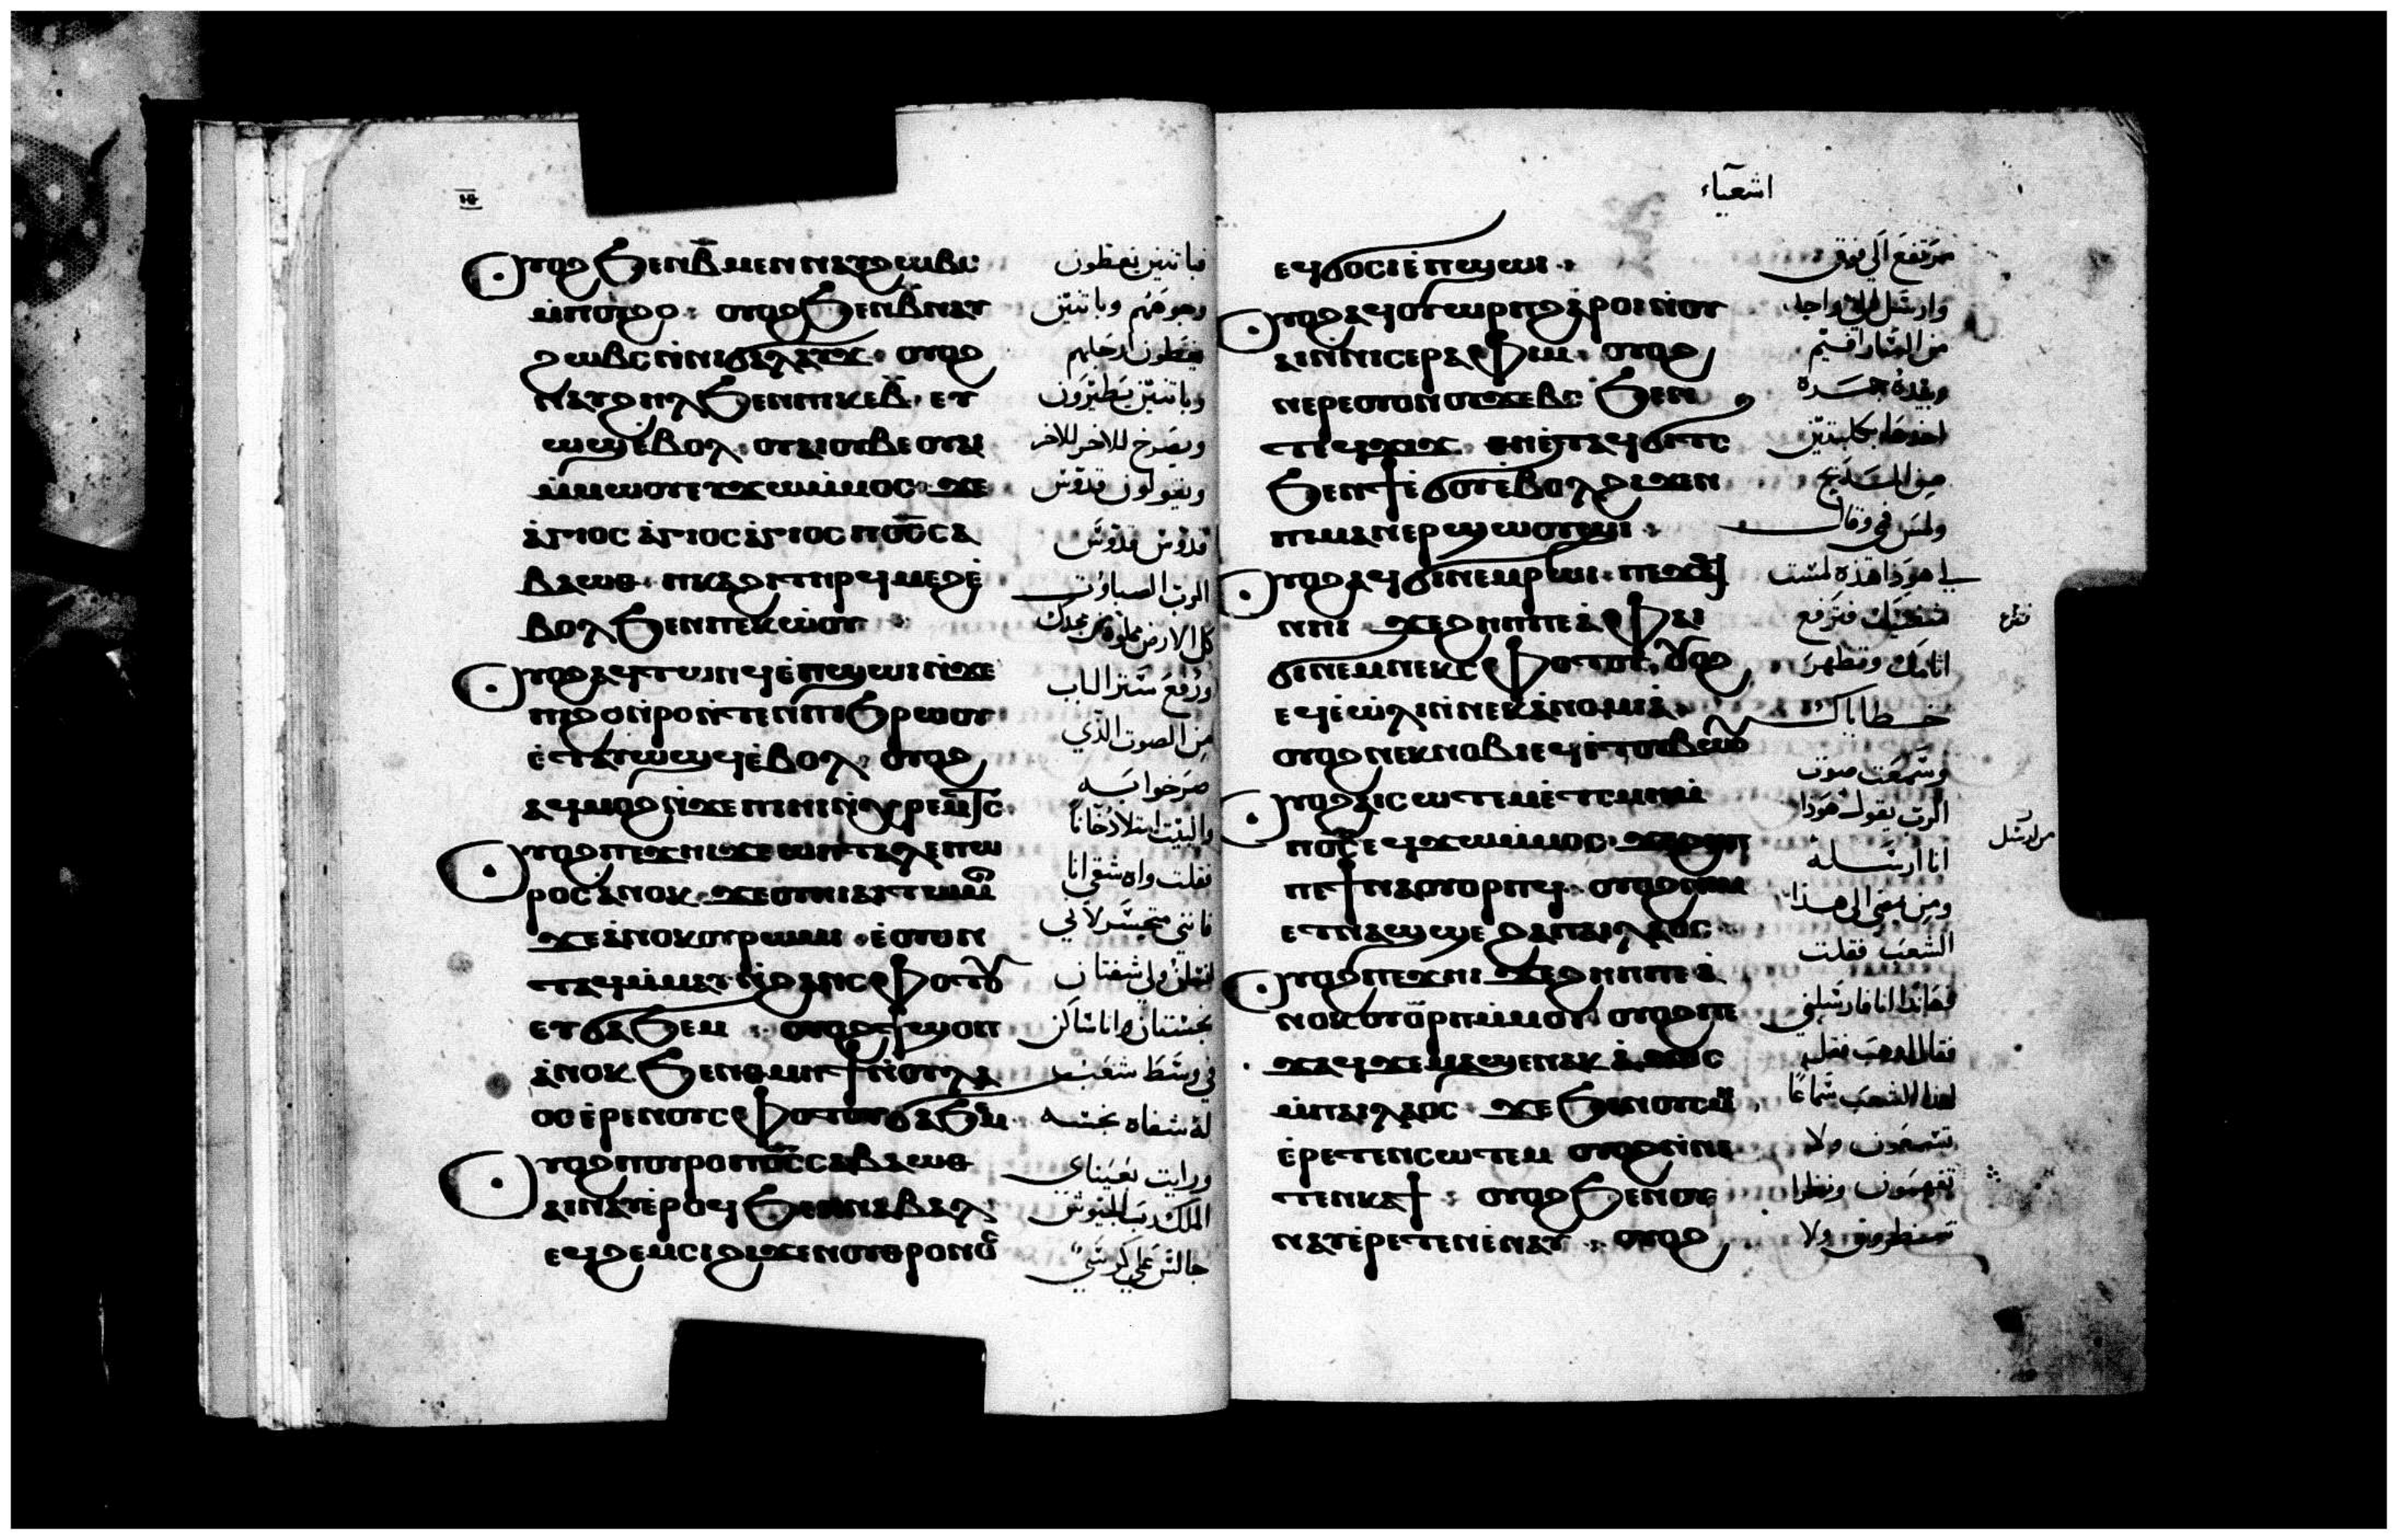 ⲟⲩⲟϩ ϧⲉⲛ ⲃ̄ ⲙⲉⲛ ⲛⲁⲩϩⲱⲃⲥ
ⲙ̀ⲡⲟⲩϩⲟ · ⲟⲩⲟϩ ϧⲉⲛ ⲃ̄ ⲛⲁⲩ
ϩⲱⲃⲥ ⲛ̀ⲛⲓϭⲁⲗⲁⲩϫ · ⲟⲩⲟϩ
ⲛⲁⲩϩⲏⲗ ϧⲉⲛ ⲡⲓⲕⲉⲃ̄ · ⲉⲩ
ⲱϣ ⲉⲃⲟⲗ · ⲟⲩⲁⲓ ⲟⲩⲃⲉ ⲟⲩⲁⲓ
ⲙ̀ⲙⲱⲟⲩ ⲉⲩϫⲱ ⲙ̀ⲙⲟⲥ · ϫⲉ
ⲁ̀ⲅⲓⲟⲥ ⲁ̀ⲅⲓⲟⲥ ⲁ̀ⲅⲓⲟⲥ ⲡⲟ̄ⲥ̄ ⲥⲁ
ⲃⲁⲱⲑ · ⲡⲕⲁϩⲓ ⲧⲏⲣϥ ⲙⲉϩ ⲉ̀
ⲃⲟⲗ ϧⲉⲛ ⲡⲉⲕⲱⲟⲩ
ⲟⲩⲟϩ ⲁϥⲧⲱⲛϥ ⲉ̀ⲡϣⲱⲓ ⲛ̀ϫⲉ
ⲡϩⲟ ⲛ̀ⲣⲟ ⲛ̀ⲧⲉⲛ ⲡⲓϧⲣⲱⲟⲩ
ⲉ̀ⲧⲁⲩⲱϣ ⲉ̀ⲃⲟⲗ · ⲟⲩⲟϩ
ⲁϥⲙⲟϩ ⲛ̀ϫⲉ ⲡⲓⲏⲓ ⲛ̀ⲭⲣⲉⲙⲧⲥ
ⲟⲩⲟϩ ⲡⲉϫⲏⲓ ϫⲉ ⲱ ⲡⲓⲧⲁⲗⲉⲡⲱ
ⲣⲟⲥ ⲁⲛⲟⲕ · ϫⲉ ⲟⲩⲛⲓⲁⲧⲧⲱⲙⲓ
ϫⲉ ⲁ̀ⲛⲟⲕ ⲟⲩⲣⲱⲙⲓ · ⲉ̀ⲟⲩⲟⲛ
ⲧⲁϥ ⲙ̀ⲙⲁⲩ ⲛ̀ϩⲁⲛⲥⲫⲟⲧⲟⲩ
ⲉⲩϭⲁϧⲉⲙ · ⲟⲩⲟϩ ϯϣⲟⲡ
ⲁⲛⲟⲕ ϧⲉⲛ ⲑⲙⲏϯ ⲛ̀ⲟⲩⲗⲁ
ⲟⲥ ⲉ̀ⲣⲉ ⲛⲟⲩⲥⲫⲟⲧⲟⲩ ϭⲁϧⲉⲙ
ⲟⲩⲟϩ ⲡⲟⲩⲣⲟ ⲡⲟ̄ⲥ̄ ⲥⲁⲃⲁⲱⲑ
ⲁⲓⲛⲁⲩ ⲉ̀ⲣⲟϥ ϧⲉⲛ ⲛⲁⲃⲁⲗ
ⲉϥϩⲉⲙⲥⲓ ϩⲓϫⲉⲛ ⲟⲩⲑⲣⲟⲛⲟⲥ
فباثنين يغطون
وجوههم وباثنين
يغطون ارجلهم
وباثنين يطيرون
ويصرخ للاخر للاخر
ويقولون قدوس
قدوس قدوس
الرب الصباوت
كل الارض مملوة من مجدك
ورفع ستر الباب
من الصوت الذي
صرخوا به
والبيت امتلا دخانا
فقلت واه شقي انا
فاني متحسر لاني
انسان ولي شفتان
نجستان وانا ساكن
في وسط شعب
له شفاه نجسه
ورايت بعيناي
الملك رب الجيوش
جالس علي كرسي
اشعياء
ⲉϥϭⲟⲥⲓ ⲉ̀ⲡϣⲱⲓ ·
ⲟⲩⲟϩ ⲁϥⲟⲩⲱⲣⲡ ϩⲁⲣⲟⲓ ⲛ̀ⲟⲩ
ⲁⲓ ⲛ̀ⲛⲓⲥⲉⲣⲁⲫⲓⲙ · ⲟⲩⲟϩ
ⲛⲉⲣⲉ ⲟⲩⲟⲛ ⲟⲩϫⲉⲃⲥ ϧⲉⲛ
ⲧⲉϥϫⲓϫ · ⲑⲏ ⲉ̀ⲧⲁϥϭⲓⲧⲥ
ϧⲉⲛ ϯⲉ̀ϭⲟⲩ ⲉ̀ⲃⲟⲗ ϩⲓϫⲉⲛ
ⲡⲓⲙⲁⲛⲉⲣϣⲱⲟⲩϣⲓ ·
ⲟⲩⲟϩ ⲁϥϭⲓⲛⲉⲙ ⲣⲱⲓ · ⲡⲉϫⲁϥ
ⲛⲏⲓ ϫⲉ ϩⲏⲡⲡⲉ ⲁ̀ ⲫⲁⲓ
ϭⲓⲛⲉⲙ ⲛⲉⲕⲥⲫⲟⲧⲟⲩ · ⲟⲩⲟϩ
ⲉϥⲉ̀ⲱ̀ⲗⲓ ⲛ̀ⲛⲉⲕⲁ̀ⲛⲟⲙⲓⲁ̀ ·
ⲟⲩⲟϩ ⲛⲉⲕⲛⲟⲃⲓ ⲉϥⲉ̀ⲧⲟⲩⲃⲱⲟⲩ
ⲟⲩⲟϩ ⲁⲓⲥⲱⲧⲉⲙ ⲉ̀ⲧⲥⲙⲏ ⲙ̀
ⲡⲟ̄ⲥ̄ ⲉϥϫⲱ ⲙ̀ⲙⲟⲥ · ϫⲉ ϩⲏⲡ
ⲡⲉ ϯⲛⲁⲟⲩⲟⲣⲡϥ · ⲟⲩⲟϩ ⲛⲓⲙ
ⲉⲑⲛⲁϣⲉ ϩⲁ ⲡⲁⲓⲗⲁⲟⲥ ·
ⲟⲩⲟϩ ⲡⲉϫⲏⲓ ϫⲉ ϩⲏⲡⲡⲉ ⲁ̀
ⲛⲟⲕ ⲟⲩⲟⲣⲡ ⲙ̀ⲙⲟⲓ · ⲟⲩⲟϩ ⲡⲉ
ϫⲁϥ ϫⲉ ⲙⲁϣⲉⲛⲁⲕ ⲁ̀ϫⲟⲥ
ⲙ̀ⲡⲁⲓⲗⲁⲟⲥ ϫⲉ ϧⲉⲛ ⲟⲩⲥⲙⲏ
ⲉ̀ⲣⲉⲧⲉⲛⲥⲱⲧⲉⲙ ⲟⲩⲟϩ ⲛ̀ⲛⲉ
ⲧⲉⲛⲕⲁϯ · ⲟⲩⲟϩ ϧⲉⲛ ⲟⲩ
ⲛⲁⲩ ⲉ̀ⲣⲉⲧⲉⲛⲉ̀ⲛⲁⲩ · ⲟⲩⲟϩ
مرتفع الي فوق
وارسل الي واحد
من السارافيم
وبيده جمرة
اخذها بكلبتين
من المذبح
ولمس في وقال
لي هوذا هذه لمست
شفتيك فترفع
اثامك وتطهر
خطاياك
وسمعت صوت
الرب يقول هوذا
انا ارسله
ومن يمضي الي هذا
الشعب فقلت
فهانذا انا فارسلني
فقال اذهب فقل
لهذا الشعب سماعا
تسمعون ولا
تفهمون ونظرا
تنظرون ولا
من ارسل